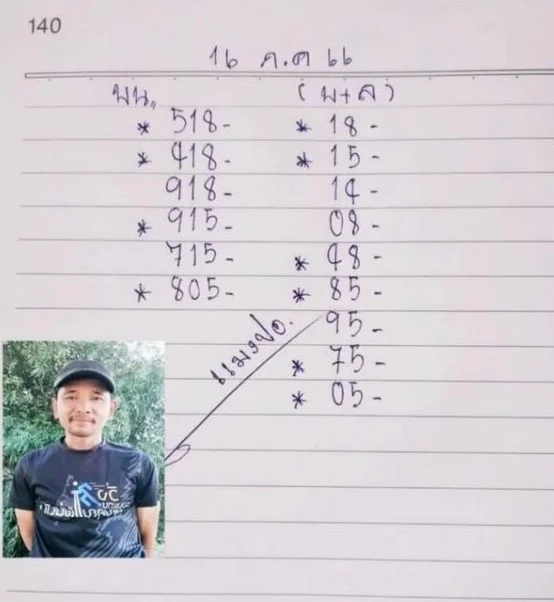 140
16 ต.ค 66
บน,, (บ+ล)
* 518- * 18-
* 418- * 15-
918- 14-
* 915- 08-
715- * 48-
* 805- * 85-
95-
แมงปอ.
* 75-
* 05-
วิ่ง